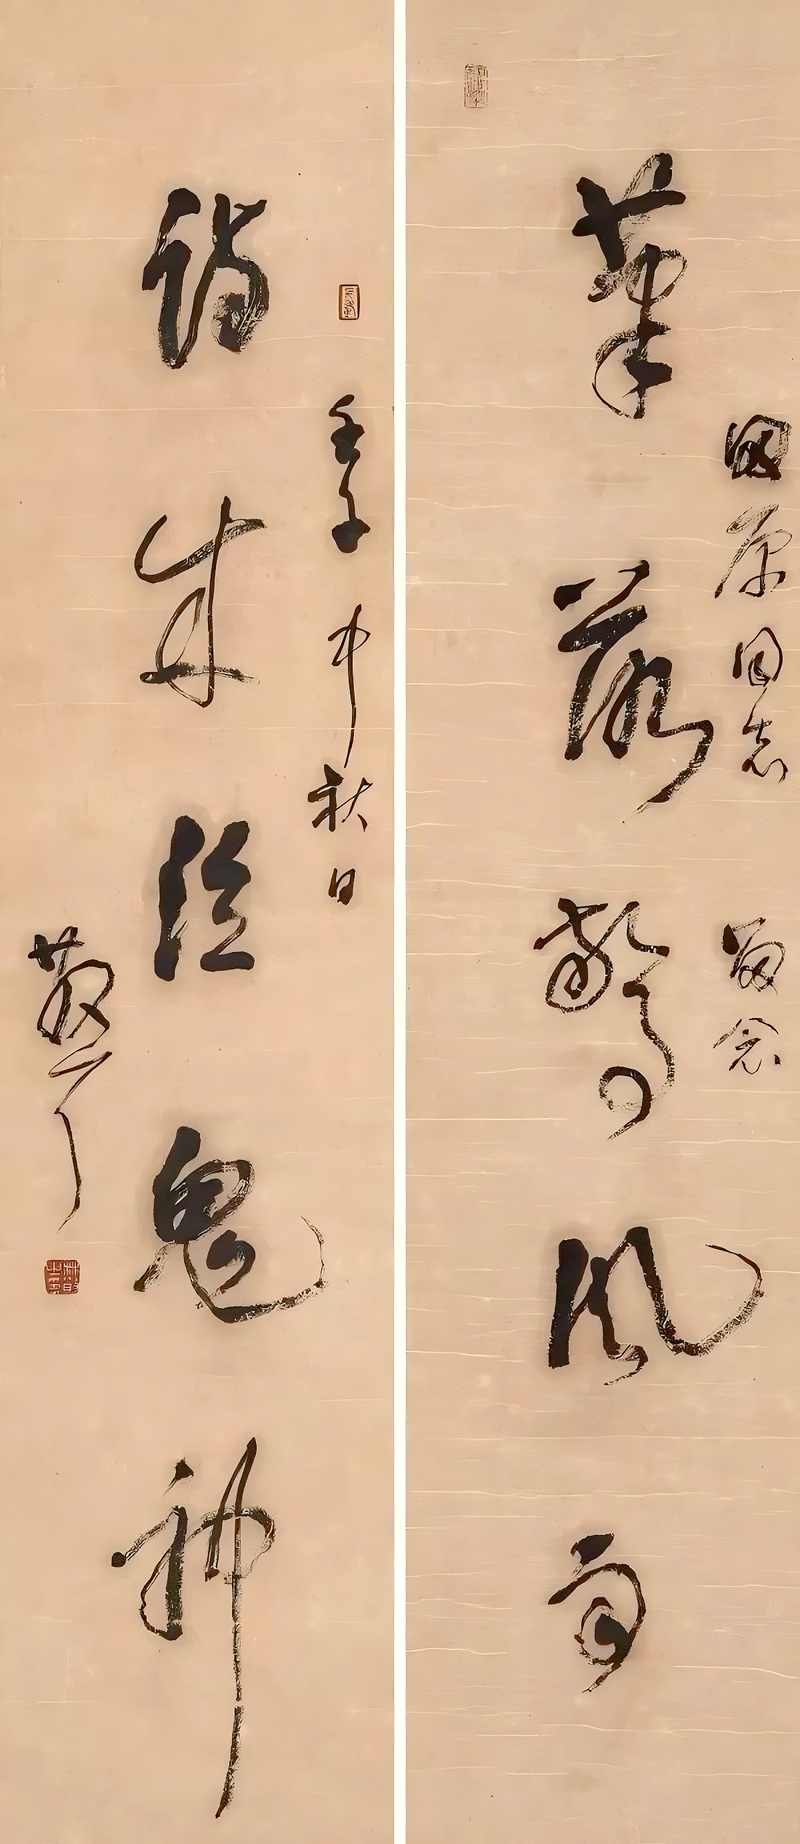 田原同志 留念
筆落驚風雨
詩成泣鬼神
壬子中秋日
散耳